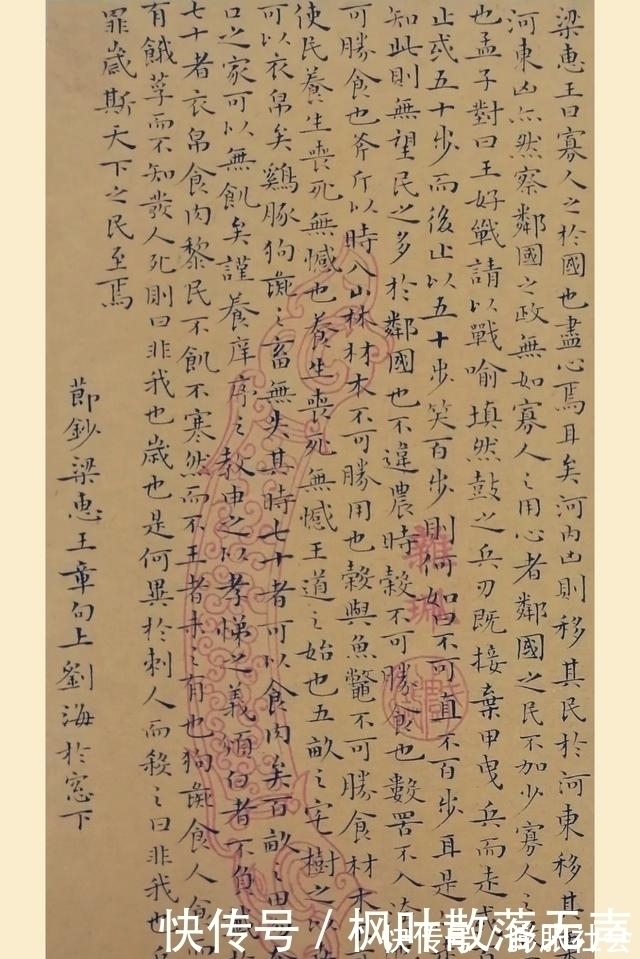 梁惠王曰寡人之於國也盡心焉耳矣河内凶則移其民於河東移其
河東凶亦然察鄰國之政無如寡人之用心者鄰國之民不加少寡人之
也孟子對曰王好戰請以戰喻填然鼓之兵刃既接棄甲曳兵而走或
止或五十步而後止以五十步笑百步則何如曰不可直不百步耳是
知此則無望民之多於鄰國也不違農時穀不可勝食也數罟不入洿
可勝食也斧斤以時入山林材木不可勝用也穀與魚鼈不可勝食材木
使民養生喪死無憾也養生喪死無憾王道之始也五畝之宅樹之以
可以衣帛矣鷄豚狗彘之畜無失其時七十者可以食肉矣百畝之田
口之家可以無飢矣謹養庠序之教申之以孝悌之義頒白者不負
七十者衣帛食肉黎民不飢不寒然而不王者未之有也狗彘食人食
有餓莩而不知發人死則曰非我也歲也是何異於刺人而殺之曰非我也
罪歲斯天下之民至焉
節鈔梁惠王章句上劉海於窓下
快传号 / 枫叶散落天南